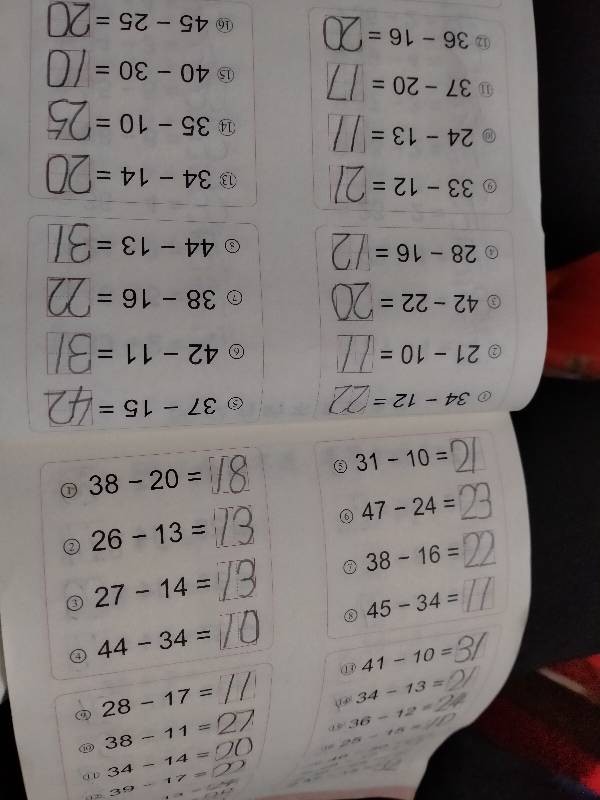 ① 34 − 12 = 22
② 21 − 10 = 11
③ 42 − 22 = 20
④ 28 − 16 = 12
⑤ 37 − 15 = 42
⑥ 42 − 11 = 31
⑦ 38 − 16 = 22
⑧ 44 − 13 = 31
⑨ 33 − 12 = 21
⑩ 24 − 13 = 11
⑪ 37 − 20 = 17
⑫ 36 − 16 = 20
⑬ 34 − 14 = 20
⑭ 35 − 10 = 25
⑮ 40 − 30 = 10
⑯ 45 − 25 = 20
① 38 − 20 = 18
② 26 − 13 = 13
③ 27 − 14 = 13
④ 44 − 34 = 10
⑤ 31 − 10 = 21
⑥ 47 − 24 = 23
⑦ 38 − 16 = 22
⑧ 45 − 34 = 11
⑨ 28 − 17 = 11
⑩ 38 − 11 = 27
⑪ 34 − 14 = 20
⑫ 39 − 17 =
⑬ 41 − 10 = 31
⑭ 34 − 13 = 21
⑮ 36 − 12 = 24
⑯ 25 − 15 = 10